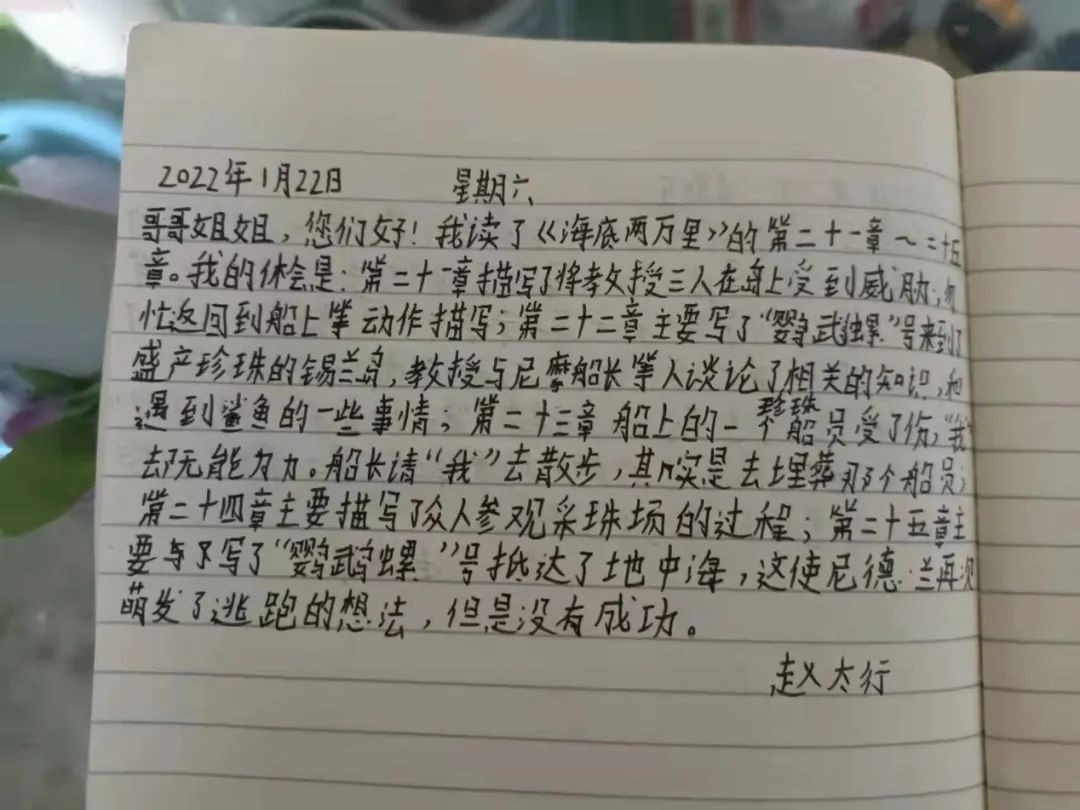 2022年1月22日 星期六
哥哥姐姐，您们好！我读了《海底两万里》的第二十一章～二十五
章。我的体会是：第二十一章描写了将教授三人在岛上受到威胁，匆
忙返回到船上等动作描写；第二十二章主要写了“鹦鹉螺”号来到了
盛产珍珠的锡兰岛，教授与尼摩船长等人谈论了相关的知识，和
遇到鲨鱼的一些事情；第二十三章船上的一个船员受了伤，“我”
却无能为力。船长请“我”去散步，其实是去埋葬那个船员；
第二十四章主要描写了众人参观采珠场的过程；第二十五章主
要写了“鹦鹉螺”号抵达了地中海，这使尼德·兰再次
萌发了逃跑的想法，但是没有成功。
赵太行